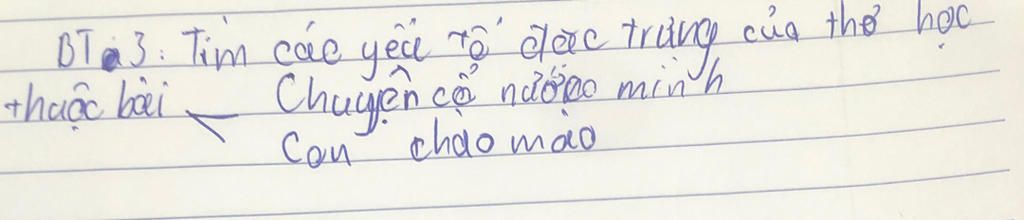 BT 3: Tìm các yếu tố đặc trưng của thơ học
thuộc bài Chuyện cổ nước mình
Con chào mào